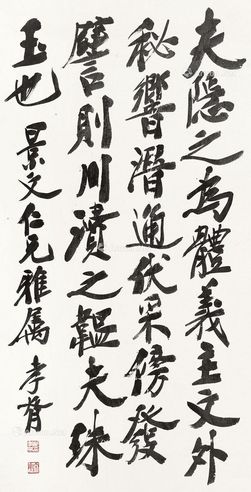 夫隐之為體義主文外
秘響潛通伏采傍發
譬則川瀆之韞夫珠
玉也 景文仁兄雅属 孝胥